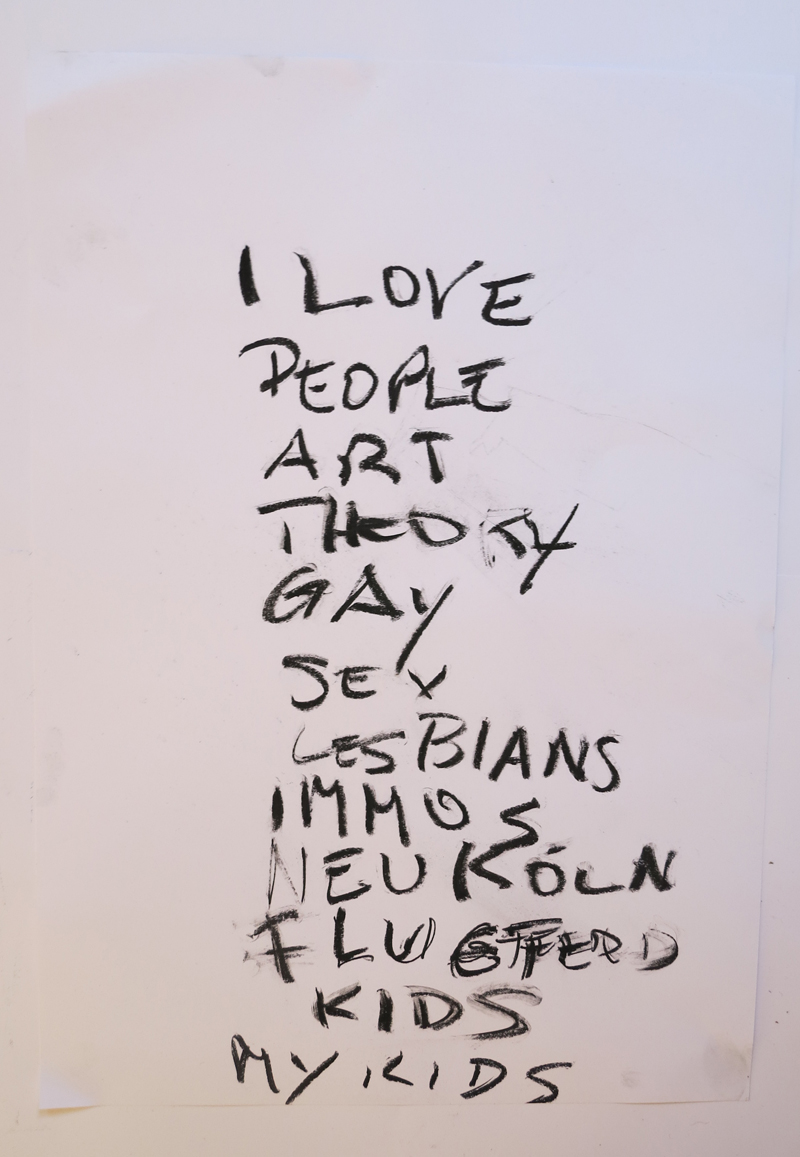 I LOVE
PEOPLE
ART
THEORY
GAY
SEX
LESBIANS
IMMOS
NEUKÖLN
KIDS
MY KIDS